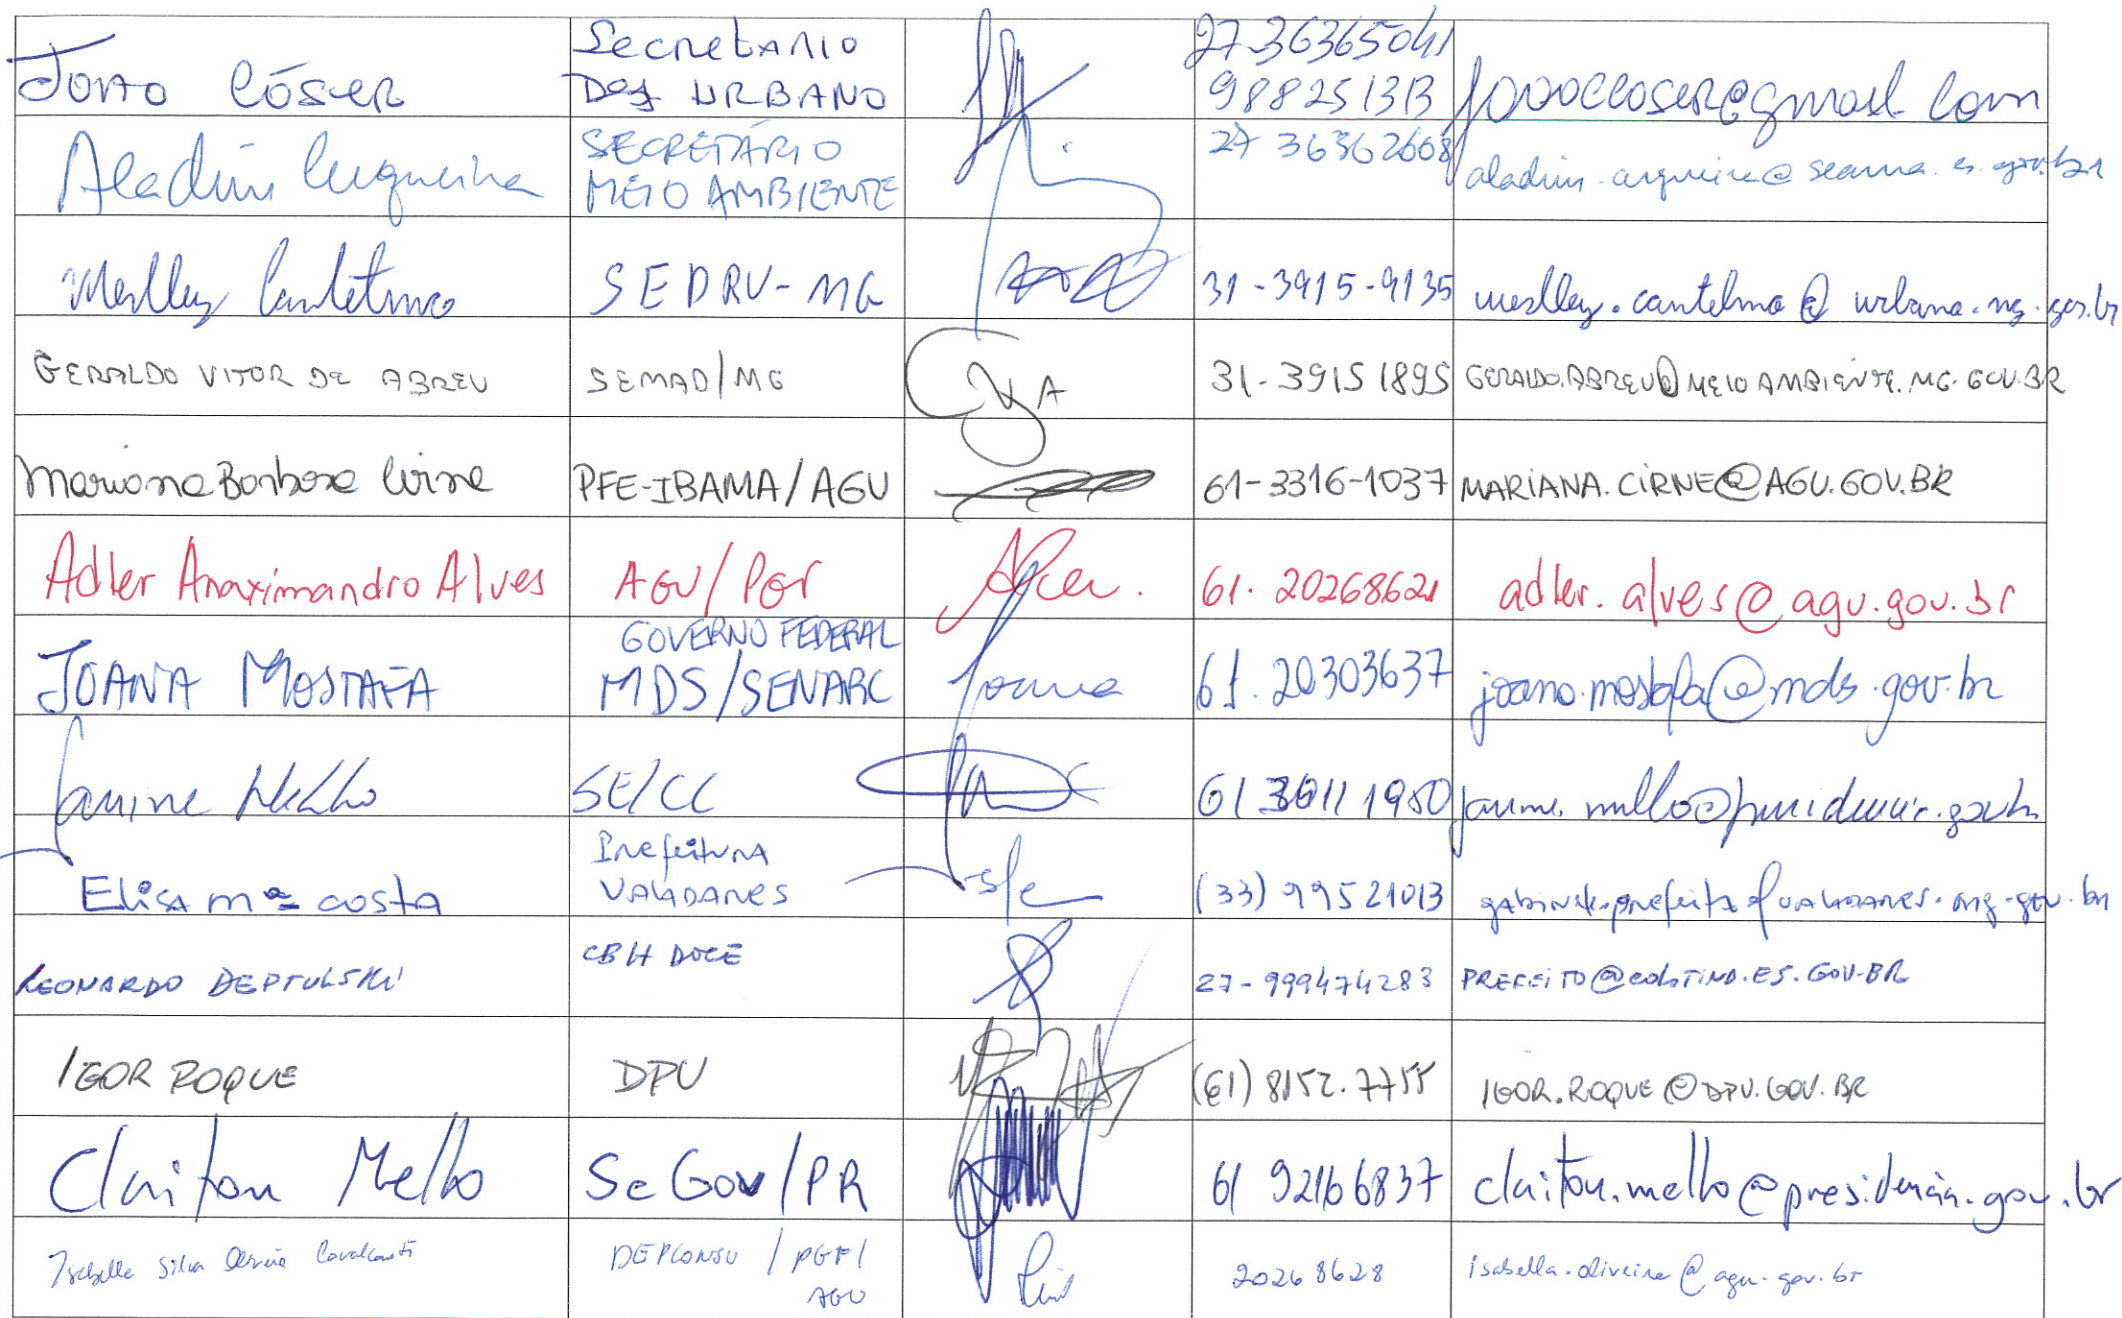 João Cóser
Secretario
Des URBANO
27-36365041
988251313
joaoccoser@gmail com
Aladim Cerqueira
SECRETÁRIO
MEIO AMBIENTE
27 36362608
aladim.cerqueira@seama.es.gov.br
Weslley Cantelmo
SEDRU-MG
31-3915-9135
weslley.cantelmo@urbano.mg.gov.br
GERALDO VITOR DE ABREU
SEMAD/MG
31-39151895
GERALDO.ABREU@MEIOAMBIENTE.MG.GOV.BR
Mariana Barbosa Cirne
PFE-IBAMA/AGU
61-3316-1037
MARIANA.CIRNE@AGU.GOV.BR
Adler Anaximandro Alves
AGU/PGF
61. 20268621
adler.alves@agu.gov.br
JOANA MOSTAFA
GOVERNO FEDERAL
MDS/SENARC
Joana
61. 20303637
joana.mostafa@mds.gov.br
Janine Mello
SE/CC
61 3411 1980
janine.mello@presidencia.gov.br
Elisa Mª Costa
Prefeitura
VALADARES
(33) 99521013
gabinete.prefeita@valadares.mg.gov.br
LEONARDO DEPTULSKI
CBH DOCE
27-999474283
PREFEITO@COLATINA.ES.GOV.BR
IGOR ROQUE
DPU
(61) 8152.7755
IGOR.ROQUE@DPU.GOV.BR
Claiton Mello
SeGov/PR
61 92166837
claiton.mello@presidencia.gov.br
Isabella Silva Oliveira Cavalcanti
DEPCONSU / PGF/
AGU
20268628
isabella.oliveira@agu.gov.br